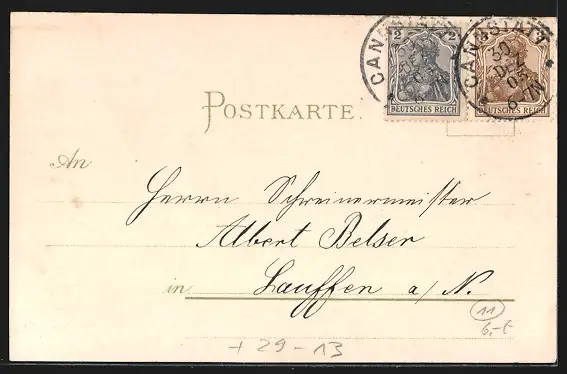 CANNSTATT
2
DEUTSCHES REICH
3
DEUTSCHES REICH
CANNSTATT
30
DEZ
8-9N
POSTKARTE.
An
Herrn Schreinermeister
Albert Belser
in Lauffen a/N.
11
6,-t
+ 29 - 13